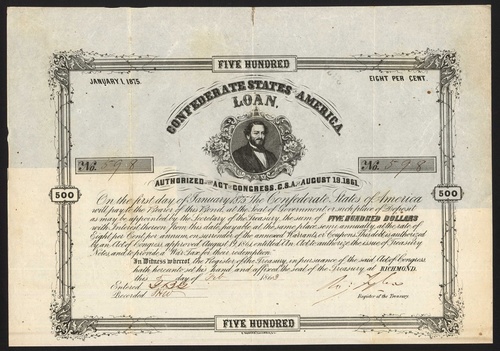 FIVE HUNDRED
JANUARY 1, 1875.
EIGHT PER CENT.
CONFEDERATE STATES AMERICA.
LOAN,
No. 598
No. 598
AUTHORIZED BY ACT OF CONGRESS, C.S.A. OF AUGUST 19, 1861.
500
500
On the first day of January 1875 the Confederate States of America
will pay to the Bearer of this Bond, at the seat of Government or such place of Deposit
as may be appointed by the Secretary of the Treasury, the sum of FIVE HUNDRED DOLLARS
with Interest thereon from this date, payable at the same place, semi annually, at the rate of
Eight per Cent, per annum, on surrender of the annexed Warrants or Coupons. This debt is authorized
By an Act of Congress, approved August 19, 1861, entitled An Act to authorize the issue of Treasury
Notes, and to provide a War Tax for their redemption.
In Witness whereof, the Register of the Treasury, in pursuance of the said Act of Congress
hath hereunto set his hand and affixed the seal of the Treasury at RICHMOND,
this day of Feb 1863
Entered
Recorded
Register of the Treasury.
FIVE HUNDRED